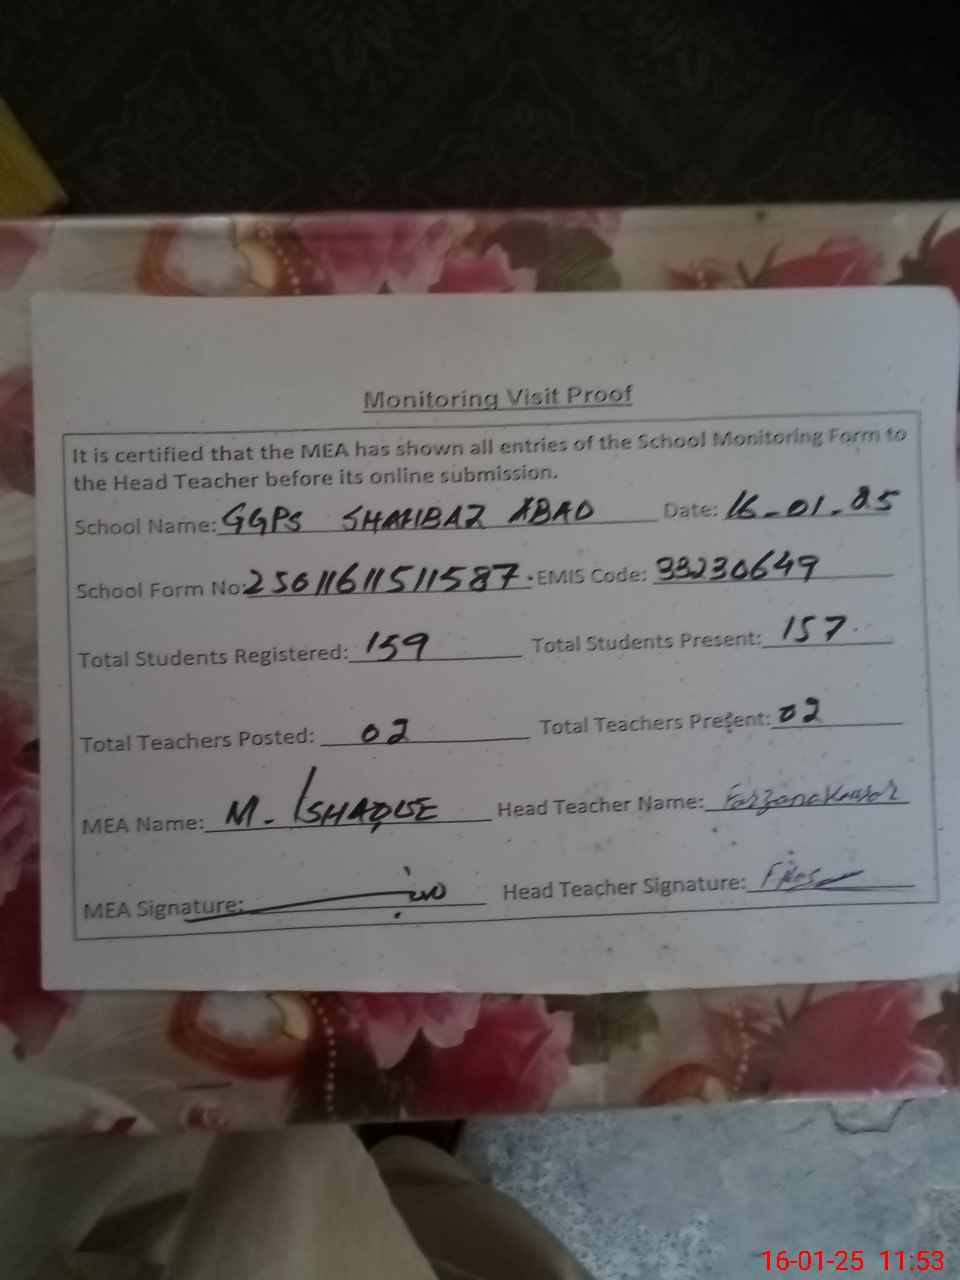 Monitoring Visit Proof
It is certified that the MEA has shown all entries of the School Monitoring Form to
the Head Teacher before its online submission.
School Name: GGPS SHAHBAZ ABAD Date: 16-01-25
School Form No: 25011611511587. EMIS Code: 33230649
Total Students Registered: 159 Total Students Present: 157.
Total Teachers Posted: 02 Total Teachers Present: 02
MEA Name: M. ISHAQUE Head Teacher Name: Farzana Kausar
MEA Signature: Head Teacher Signature:
16-01-25 11:53